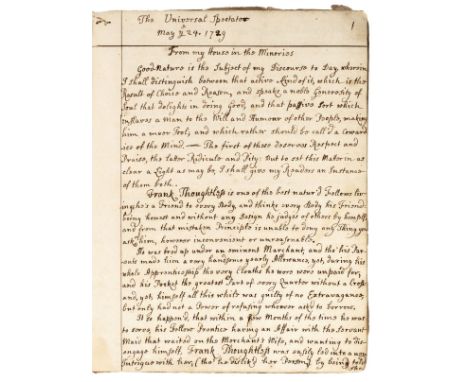 The Universal Spectator
1
May ye 24. 1729
From my House in the Minories
Good Nature is the Subject of my Discourse to Day, wherein
I shall distinguish between that active Kind of it, which is the
Result of Choice and Reason, and speaks a noble Generosity of
Soul that delights in doing Good, and that passive sort which
enslaves a Man to the Will and Humour of other People, making
him a meer Fool, and which rather should be call'd a Coward
ice of the Mind — The first of these deserves Respect and
Praise, the latter Ridicule and Pity: but to set this Matter in as
clear a Light as may be, I shall give my Readers an Instance
of them both.
Frank Thoughtless is one of the best natur'd Fellows liv
ing he's a Friend to every Body, and thinks every Body his Friend.
being honest and without any Design he judges of others by himself
and from that mistaken Principle is unable to deny any Thing you
ask him, however inconvenient or unreasonable.
He was bred up under an eminent Merchant, and tho' his Par
ents made him a very handsome yearly Allowance, yet, during his
whole Apprenticeship the very Cloaths he wore were unpaid for,
and his Pocket the greatest Part of every Quarter without a Cross
and, yet, himself all this while was guilty of no Extravagance,
but only had not a Power of refusing whoever ask'd to borrow.
It so happen'd, that within a few Months of the time he was
to serve, his Fellow Prentice having an Affair with the Servant
Maid that waited on the Merchant's Wife, and wanting to dis
engage himself, Frank Thoughtless was easily led into a new
Intrigue with her, (tho' he dislik'd her Person) by being told
she